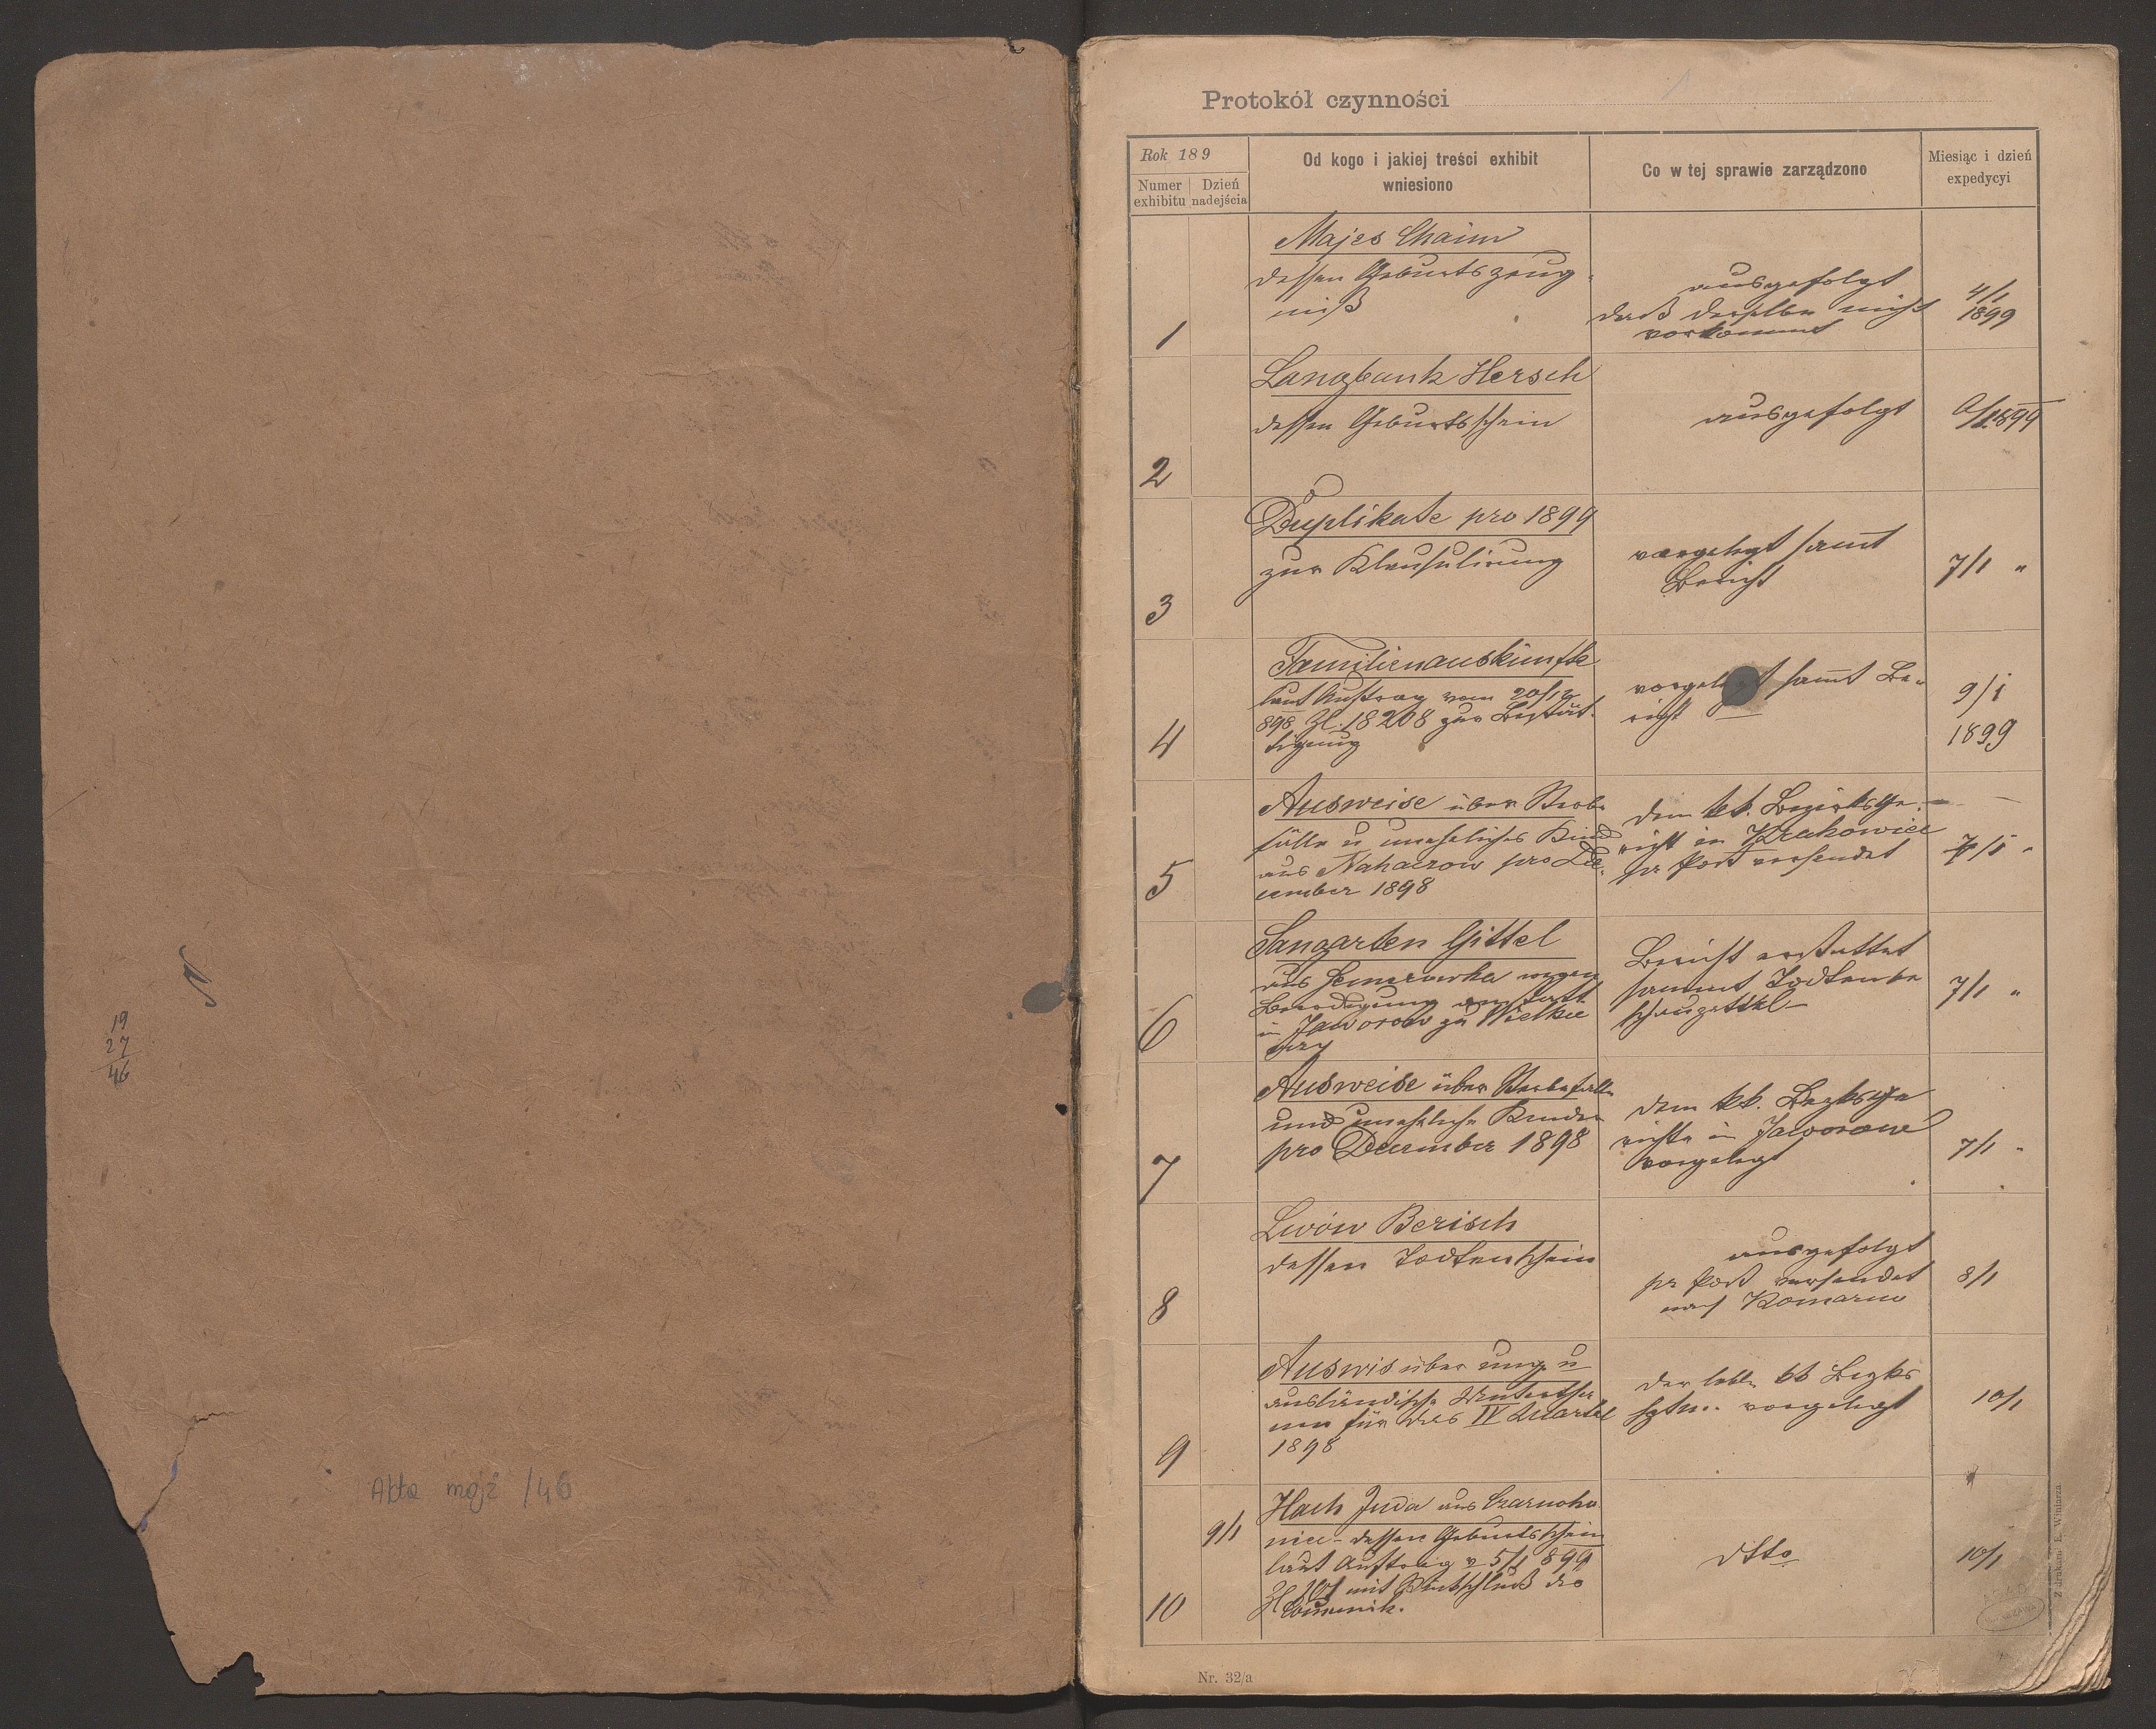 19
27
46
Akta mojż /46
1
Protokół czynności
Rok 189
Numer exhibitu
Dzień nadejścia
Od kogo i jakiej treści exhibit
wniesiono
Co w tej sprawie zarządzone
Miesiąc i dzień
expedycyi
1
Majes Chaim
dessen Geburtszeug-
niß
ausgefolgt
daß derselbe nicht
vorkommt
4/1
1899
2
Langbank Hersch
dessen Geburtsschein
ausgefolgt
1899
3
Duplikate pro 1899
zur Klausulirung
vorgelegt samt
Bericht
7/1 "
4
Familienauskünfte
laut Auftrag vom 20/12
898 Zl. 18208 zur Bestät-
tigung
vorgelegt samt Be-
richt
9/1
1899
5
Ausweise über Sterbe
fälle u uneheliches Kind
aus Nahaczow pro De-
cember 1898
dem kk. Bezirksge-
richt in Krakowiec
pr Post versendet
7/1 "
6
Sangarten Gittel
aus wegen
Beerdigung anstatt
in Jaworow zu Wielkie
oczy
Bericht erstattet
sammt Todtenbe
schauzettel
7/1 "
7
Ausweise über Sterbefälle
und uneheliche Kinder
pro December 1898
dem kk. Bezksge
richte in Jaworow
vorgelegt
7/1 "
8
Lwów Berisch
dessen Todtenschein
ausgefolgt
pr Post versendet
nach Komarno
8/1
9
Auswis über ung. u
ausländische
für das IV Quartal
1898
der löbl. kk Bezks
vorgelegt
10/1
10
9/1
Hach Juda aus Czarnoko
niec - dessen Geburtsschein
laut Auftrag v 5/1 899
Zl mit Rückschluß des
dtto
10/1
Nr. 32/a
Z drukarni E. Winiarza